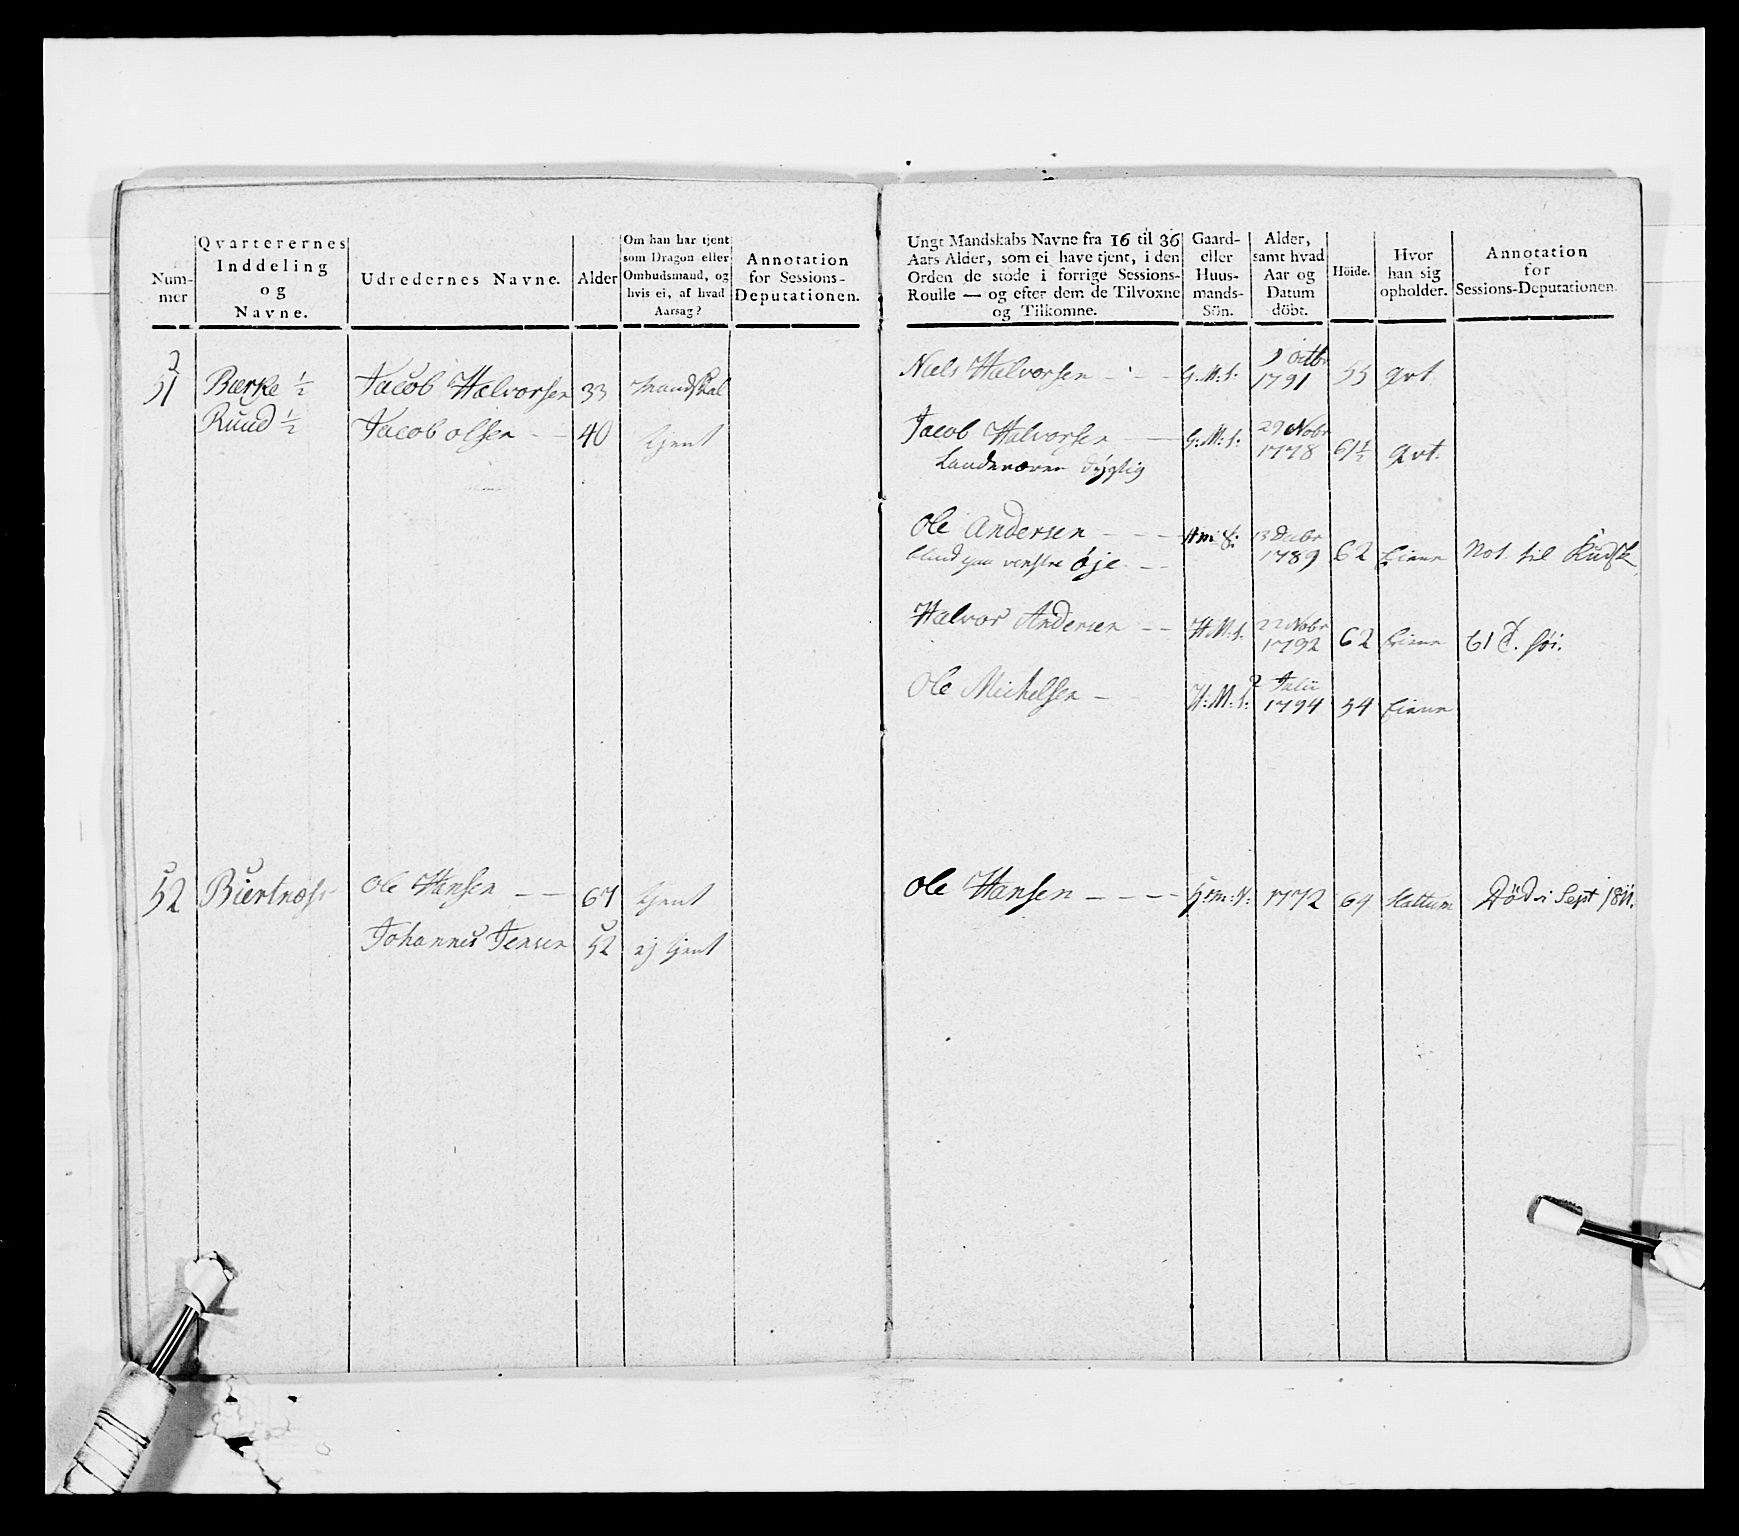 Nummer
Qvarterernes Inddeling og Navne.
Udredernes Navne.
Alder
Om han har tjent som Dragon eller Ombudsmand, og hvis ei, af hvad Aarsag?
Annotation for Sessions-Deputationen.
Ungt Mandskabs Navne fra 16 til 36 Aars Alder, som ei have tjent, i den Orden de stode i forrige Sessions-Roulle — og efter dem de Tilvoxne og Tilkomne.
Gaard- eller Huusmands-Sön.
Alder, samt hvad Aar og Datum döbt.
Höide.
Hvor han sig opholder.
Annotation for Sessions-Deputationen.
51 Bærke ½ Jacob Halvorsen 33 Mandskal
Ruud ½ Jacob olsen - - 40 tjent
Niels Halvorsen - - - G:M:S: 9 Octbr 1791 55 qvt.
Jacob Halvorsen - - G:M:S: 29 Nobr 1778 61½ qvt.
Landeværn dygtig
Ole Andersen - - - Hm:S: 13 Decbr 1789 62 Not. til Kudsk
blind paa venstre øje - -
Halvor Andersen - - H:M:S. 22 Nobr 1792 62 61 T. høi.
Ole Michelsen - H:M:S: 2 Julii 1794 54
52 Ole Hansen - - 67 tjent
Johannes Jensen 52 ej tjent
Ole Hansen - - - 1772 64 Död i Sept 1811.